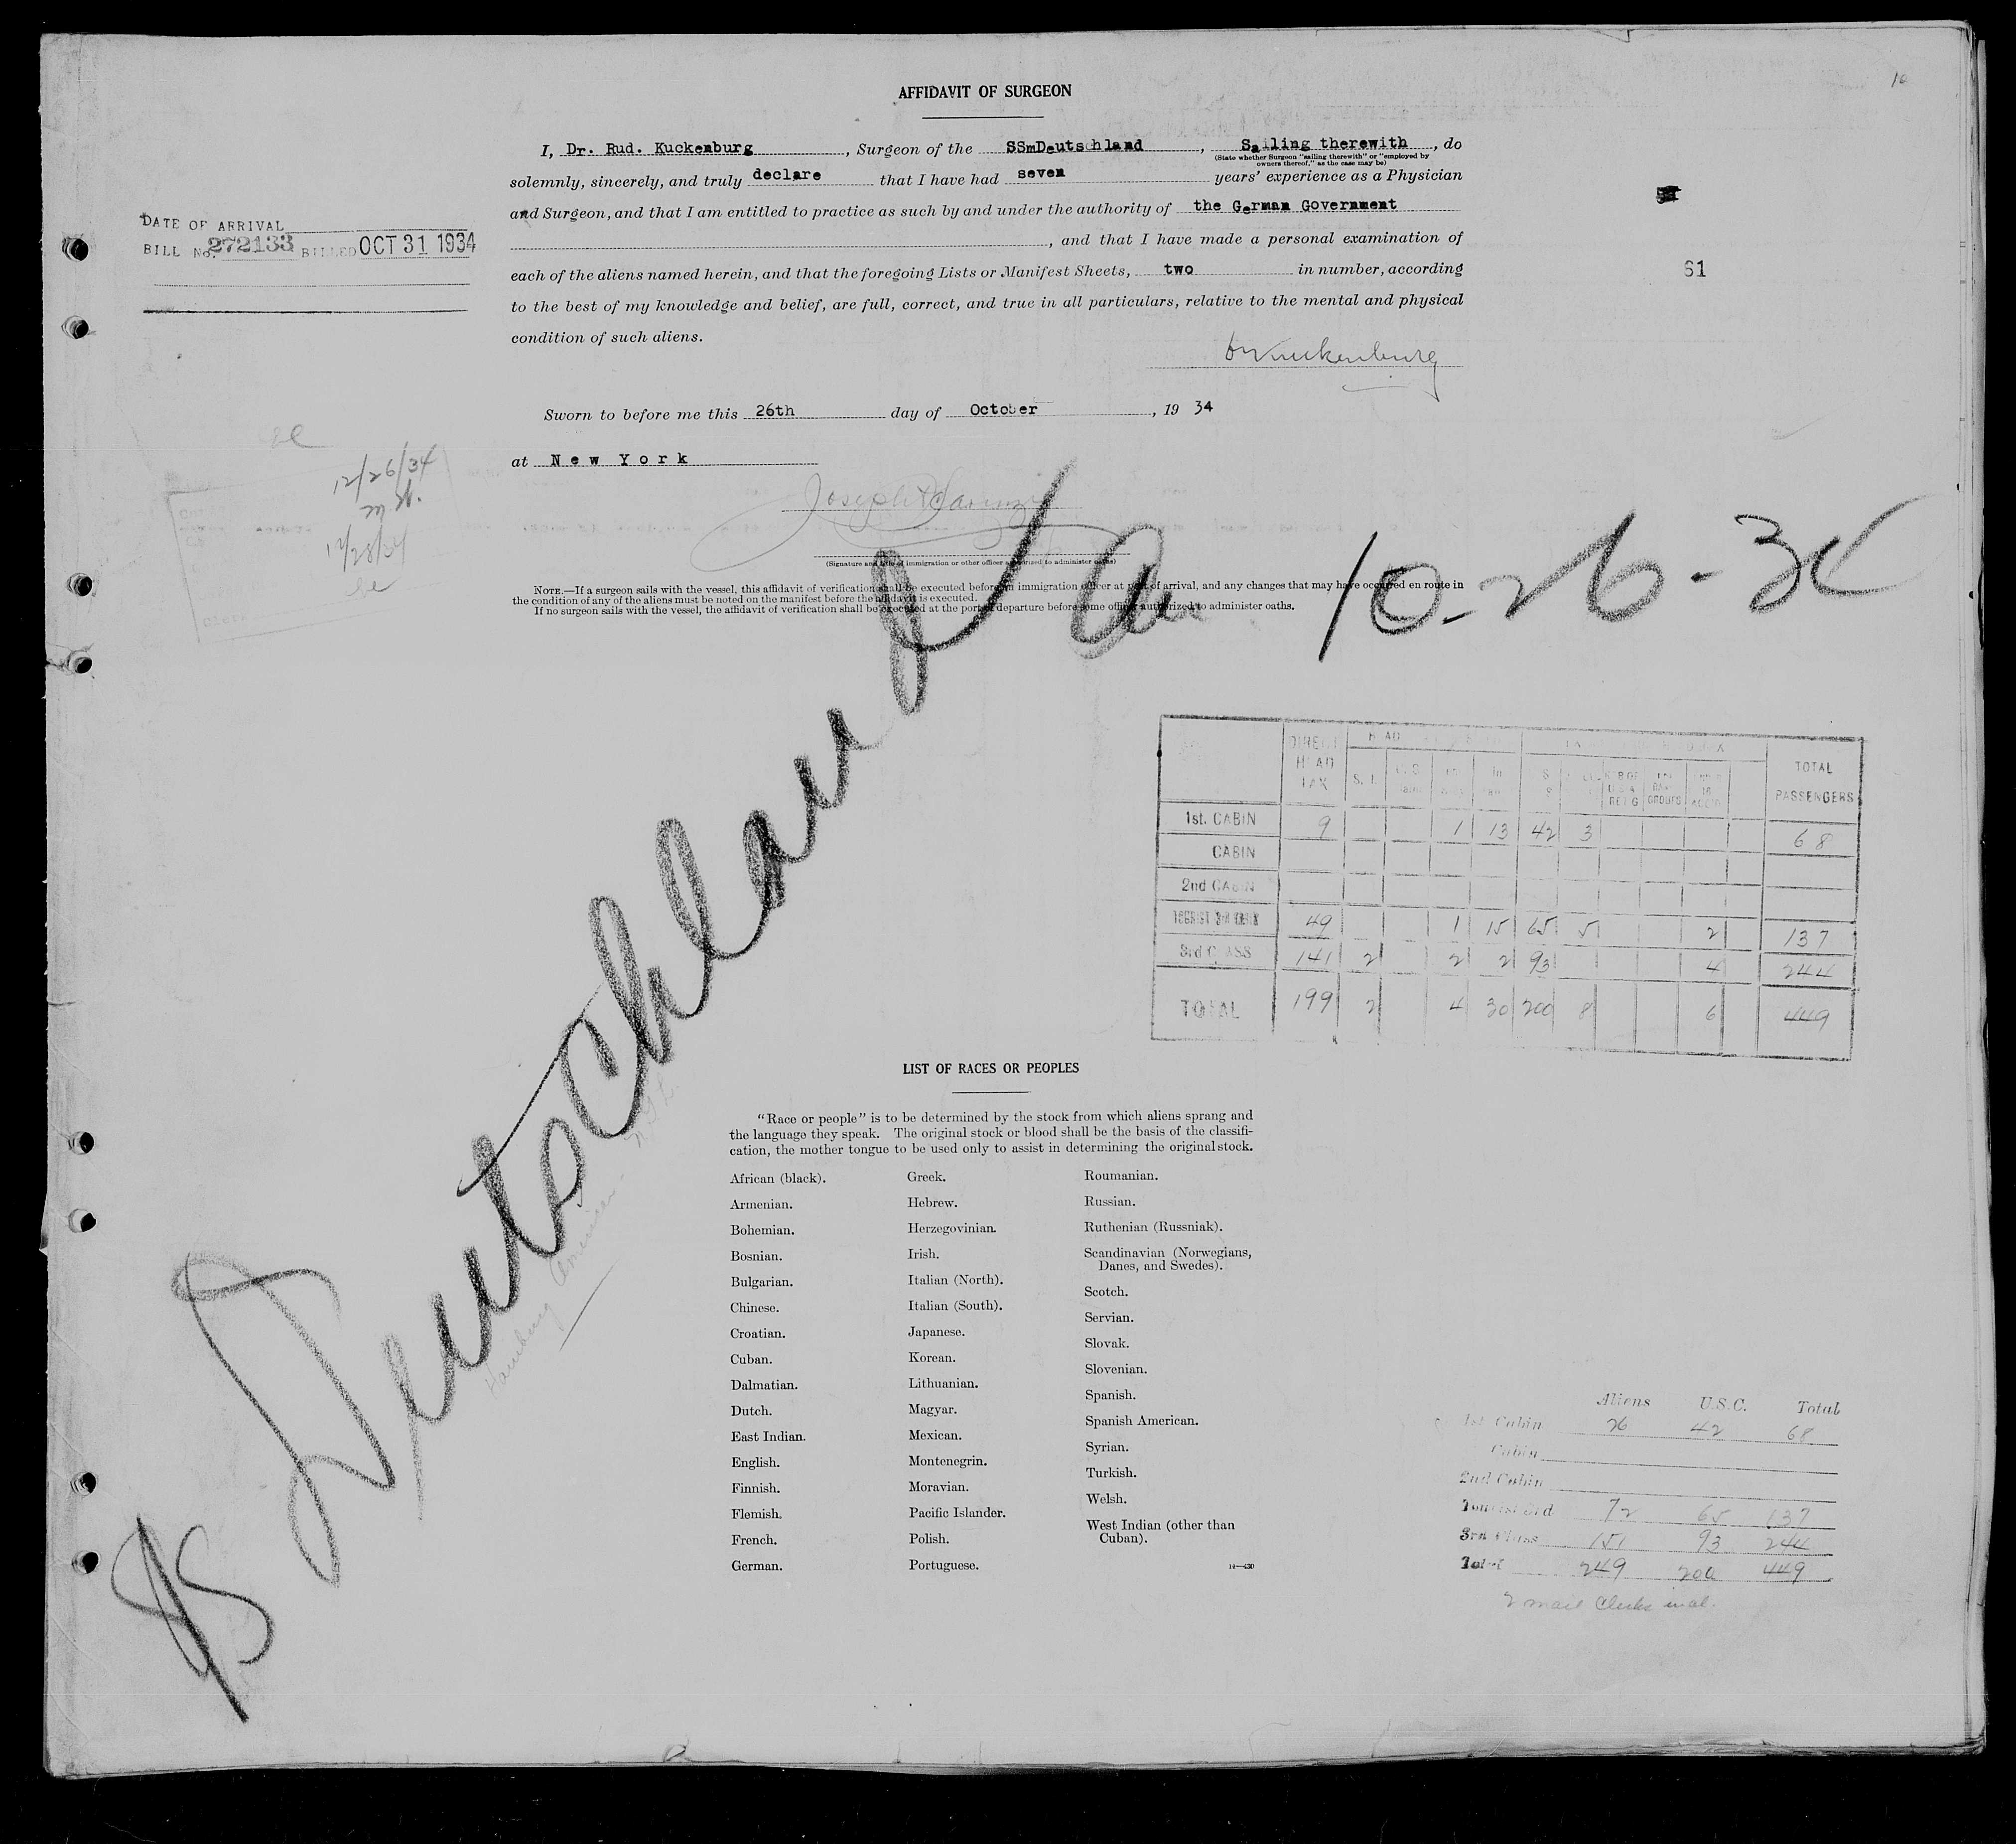 10
AFFIDAVIT OF SURGEON
I, Dr. Rud. Kuckenburg, Surgeon of the SSmDeutschland, Sailing therewith, do
(State whether Surgeon "sailing therewith" or "employed by
owners thereof," as the case may be)
solemnly, sincerely, and truly declare that I have had seven years' experience as a Physician
and Surgeon, and that I am entitled to practice as such by and under the authority of the German Government
, and that I have made a personal examination of
each of the aliens named herein, and that the foregoing Lists or Manifest Sheets, two in number, according
to the best of my knowledge and belief, are full, correct, and true in all particulars, relative to the mental and physical
condition of such aliens.
DATE OF ARRIVAL
BILL No. 272133 BILLED OCT 31 1934
61
Sworn to before me this 26th day of October, 19 34
at New York
12/26/34
12/28/34
(Signature and title of immigration or other officer authorized to administer oaths)
NOTE.—If a surgeon sails with the vessel, this affidavit of verification shall be executed before an immigration officer at port of arrival, and any changes that may have occurred en route in
the condition of any of the aliens must be noted on the manifest before the affidavit is executed.
If no surgeon sails with the vessel, the affidavit of verification shall be executed at the port of departure before some officer authorized to administer oaths.
Deutschland 10-26-34
DIRECT HEAD TAX S. I. TOTAL PASSENGERS
1st. CABIN 9 1 13 42 3 68
CABIN
2nd CABIN
TOURIST 3rd CABIN 49 1 15 65 5 2 137
3rd CLASS 141 2 2 2 93 4 244
TOTAL 199 2 4 30 200 8 6 449
LIST OF RACES OR PEOPLES
"Race or people" is to be determined by the stock from which aliens sprang and
the language they speak. The original stock or blood shall be the basis of the classifi-
cation, the mother tongue to be used only to assist in determining the original stock.
African (black).
Armenian.
Bohemian.
Bosnian.
Bulgarian.
Chinese.
Croatian.
Cuban.
Dalmatian.
Dutch.
East Indian.
English.
Finnish.
Flemish.
French.
German.
Greek.
Hebrew.
Herzegovinian.
Irish.
Italian (North).
Italian (South).
Japanese.
Korean.
Lithuanian.
Magyar.
Mexican.
Montenegrin.
Moravian.
Pacific Islander.
Polish.
Portuguese.
Roumanian.
Russian.
Ruthenian (Russniak).
Scandinavian (Norwegians,
Danes, and Swedes).
Scotch.
Servian.
Slovak.
Slovenian.
Spanish.
Spanish American.
Syrian.
Turkish.
Welsh.
West Indian (other than
Cuban).
14—430
Hamburg American
Aliens U.S.C. Total
1st Cabin 26 42 68
Cabin
2nd Cabin
Tourist 3rd 72 65 137
3rd Class 151 93 244
Total 249 200 449
2 mail Clerks incl.